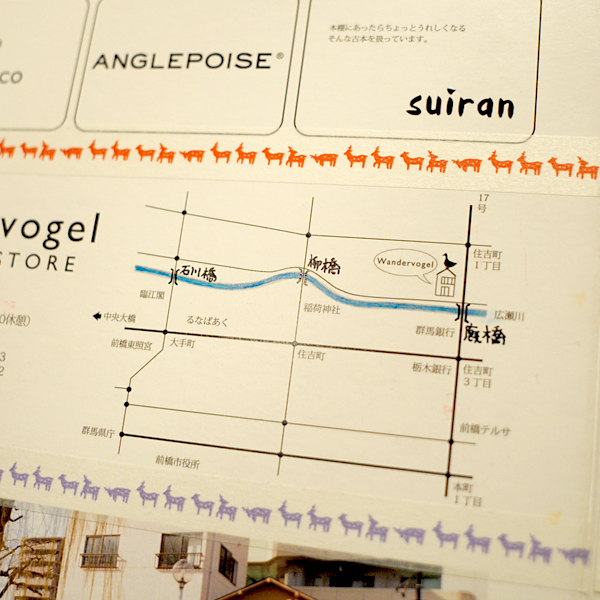 co
ANGLEPOISE®
本棚にあったらちょっとうれしくなる
そんな古本を扱っています。
suiran
vogel
STORE
休憩)
3
2
17
号
住吉町
1丁目
Wandervogel
石川橋
柳橋
臨江閣
稲荷神社
広瀬川
群馬銀行
厩橋
中央大橋
るなぱあく
前橋東照宮
大手町
住吉町
栃木銀行
住吉町
3丁目
前橋テルサ
群馬県庁
前橋市役所
本町
1丁目